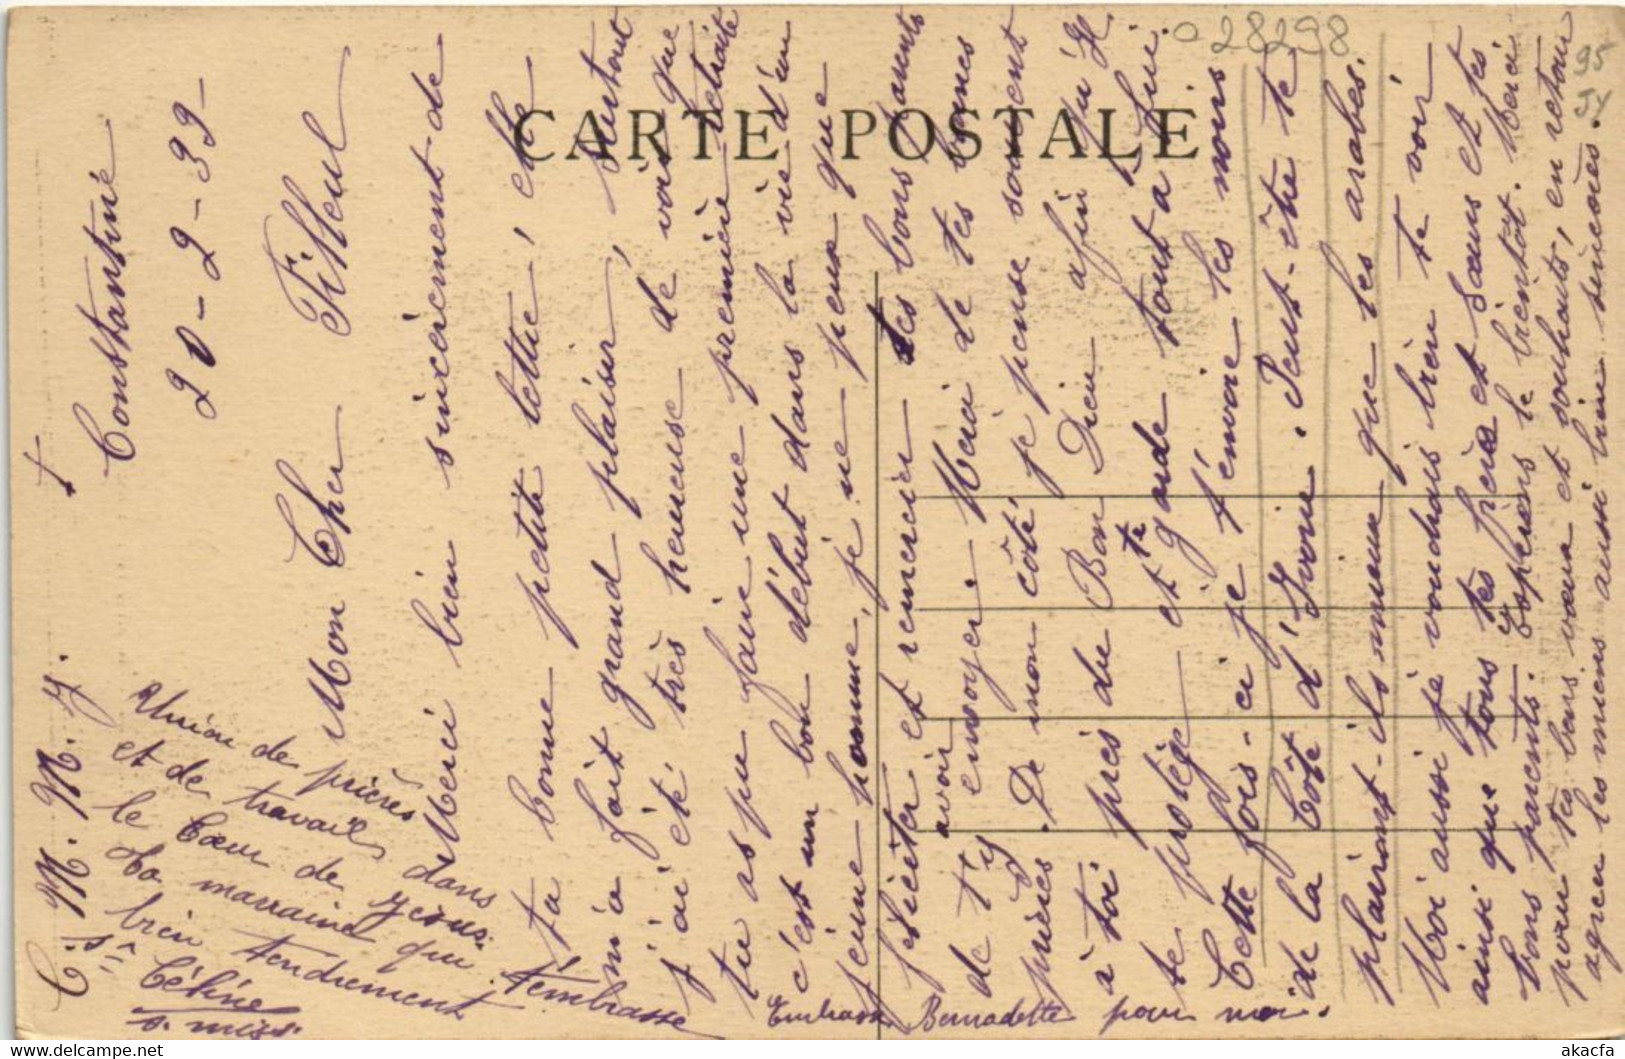 028298
95
54
CARTE POSTALE
+
Constantine
20-2-39-
Mon Cher Filleul
Merci bien sincèrement de
ta bonne petite lettre, elle
m'a fait grand plaisir, surtout
j'ai été très heureuse de voir que
tu as pu faire une première retraite
c'est un bon début dans la vie d'un
jeune homme, je ne peux que
féliciter et remercier tes bons parents
de t'y avoir envoyer. Merci de tes bonnes
prières. De mon côté je pense souvent
à toi près du Bon Dieu afin qu'Il
te protège et te garde tout à Lui.
Cette fois-ci je t'envoie les noirs
de la Côte d'Ivoire. Peut-être te
plairont-ils mieux que les arabes.
Moi aussi je voudrais bien te voir
ainsi que tous tes frères et sœurs et tes
bons parents. Espérons le bientôt. Merci
pour tes bons vœux et souhaits, en retour
agrée les miens aussi bien sincères.
C. M. M. Y.
Union de prières
et de travail dans
le Cœur de Jésus.
Ta marraine qui t'embrasse
bien tendrement
Sr Céline
s. miss.
Embrasse Bernadette pour moi.
https://www.delcampe.net
akacfa